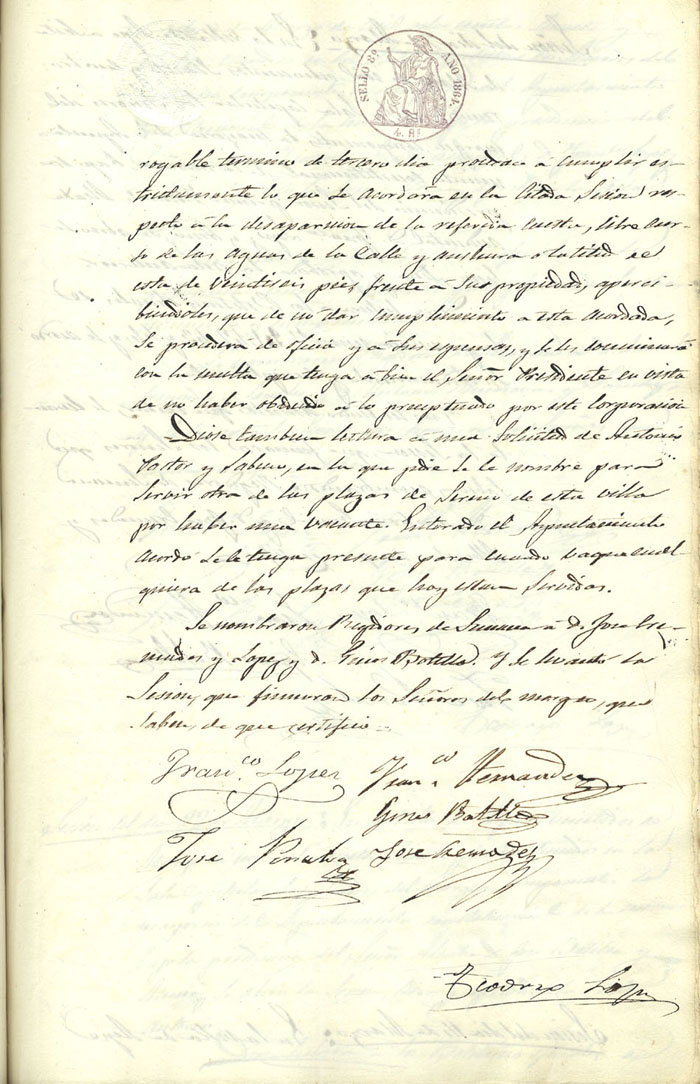 SELLO 8º AÑO 1864.
4. Rs
rogable termino de tercero dia proceda a cumplir es-
trictamente lo que se acordara en la citada Sesion res-
pecto á la desaparicion de la referida cuesta, libre curso
de las aguas de la Calle y anchura o latitud de
esta de veintiseis pies frente á su propiedad, aperci-
biendoles, que de no dar cumplimiento a esta acordada,
se procedera de oficio y á sus espensas, y se les conminará
con la multa que tenga á bien el Señor Presidente en vista
de no haber obedecido á lo preceptuado por esta Corporacion
Diose tambien lectura á una Solicitud de Antonio
Pastor y Sabuco, en la que pide se le nombre para
servir otra de las plazas de Sereno de esta villa
por haber una vacante. Enterado el Ayuntamiento
acordó se le tenga presente para cuando vaque cual
quiera de las plazas que hoy estan servidas.
Se nombraron Regidores de Semana á D. Jose Cre-
mades y Lopez y D. Gines Botella. Y se levantó la
Sesion, que firmaran los Señores del margen, que
saben, de que certifico.
Franco. Lopez Franco Hernandez
Gines Botella
Jose Penalva Jose Cremades
Teodoro Lopez